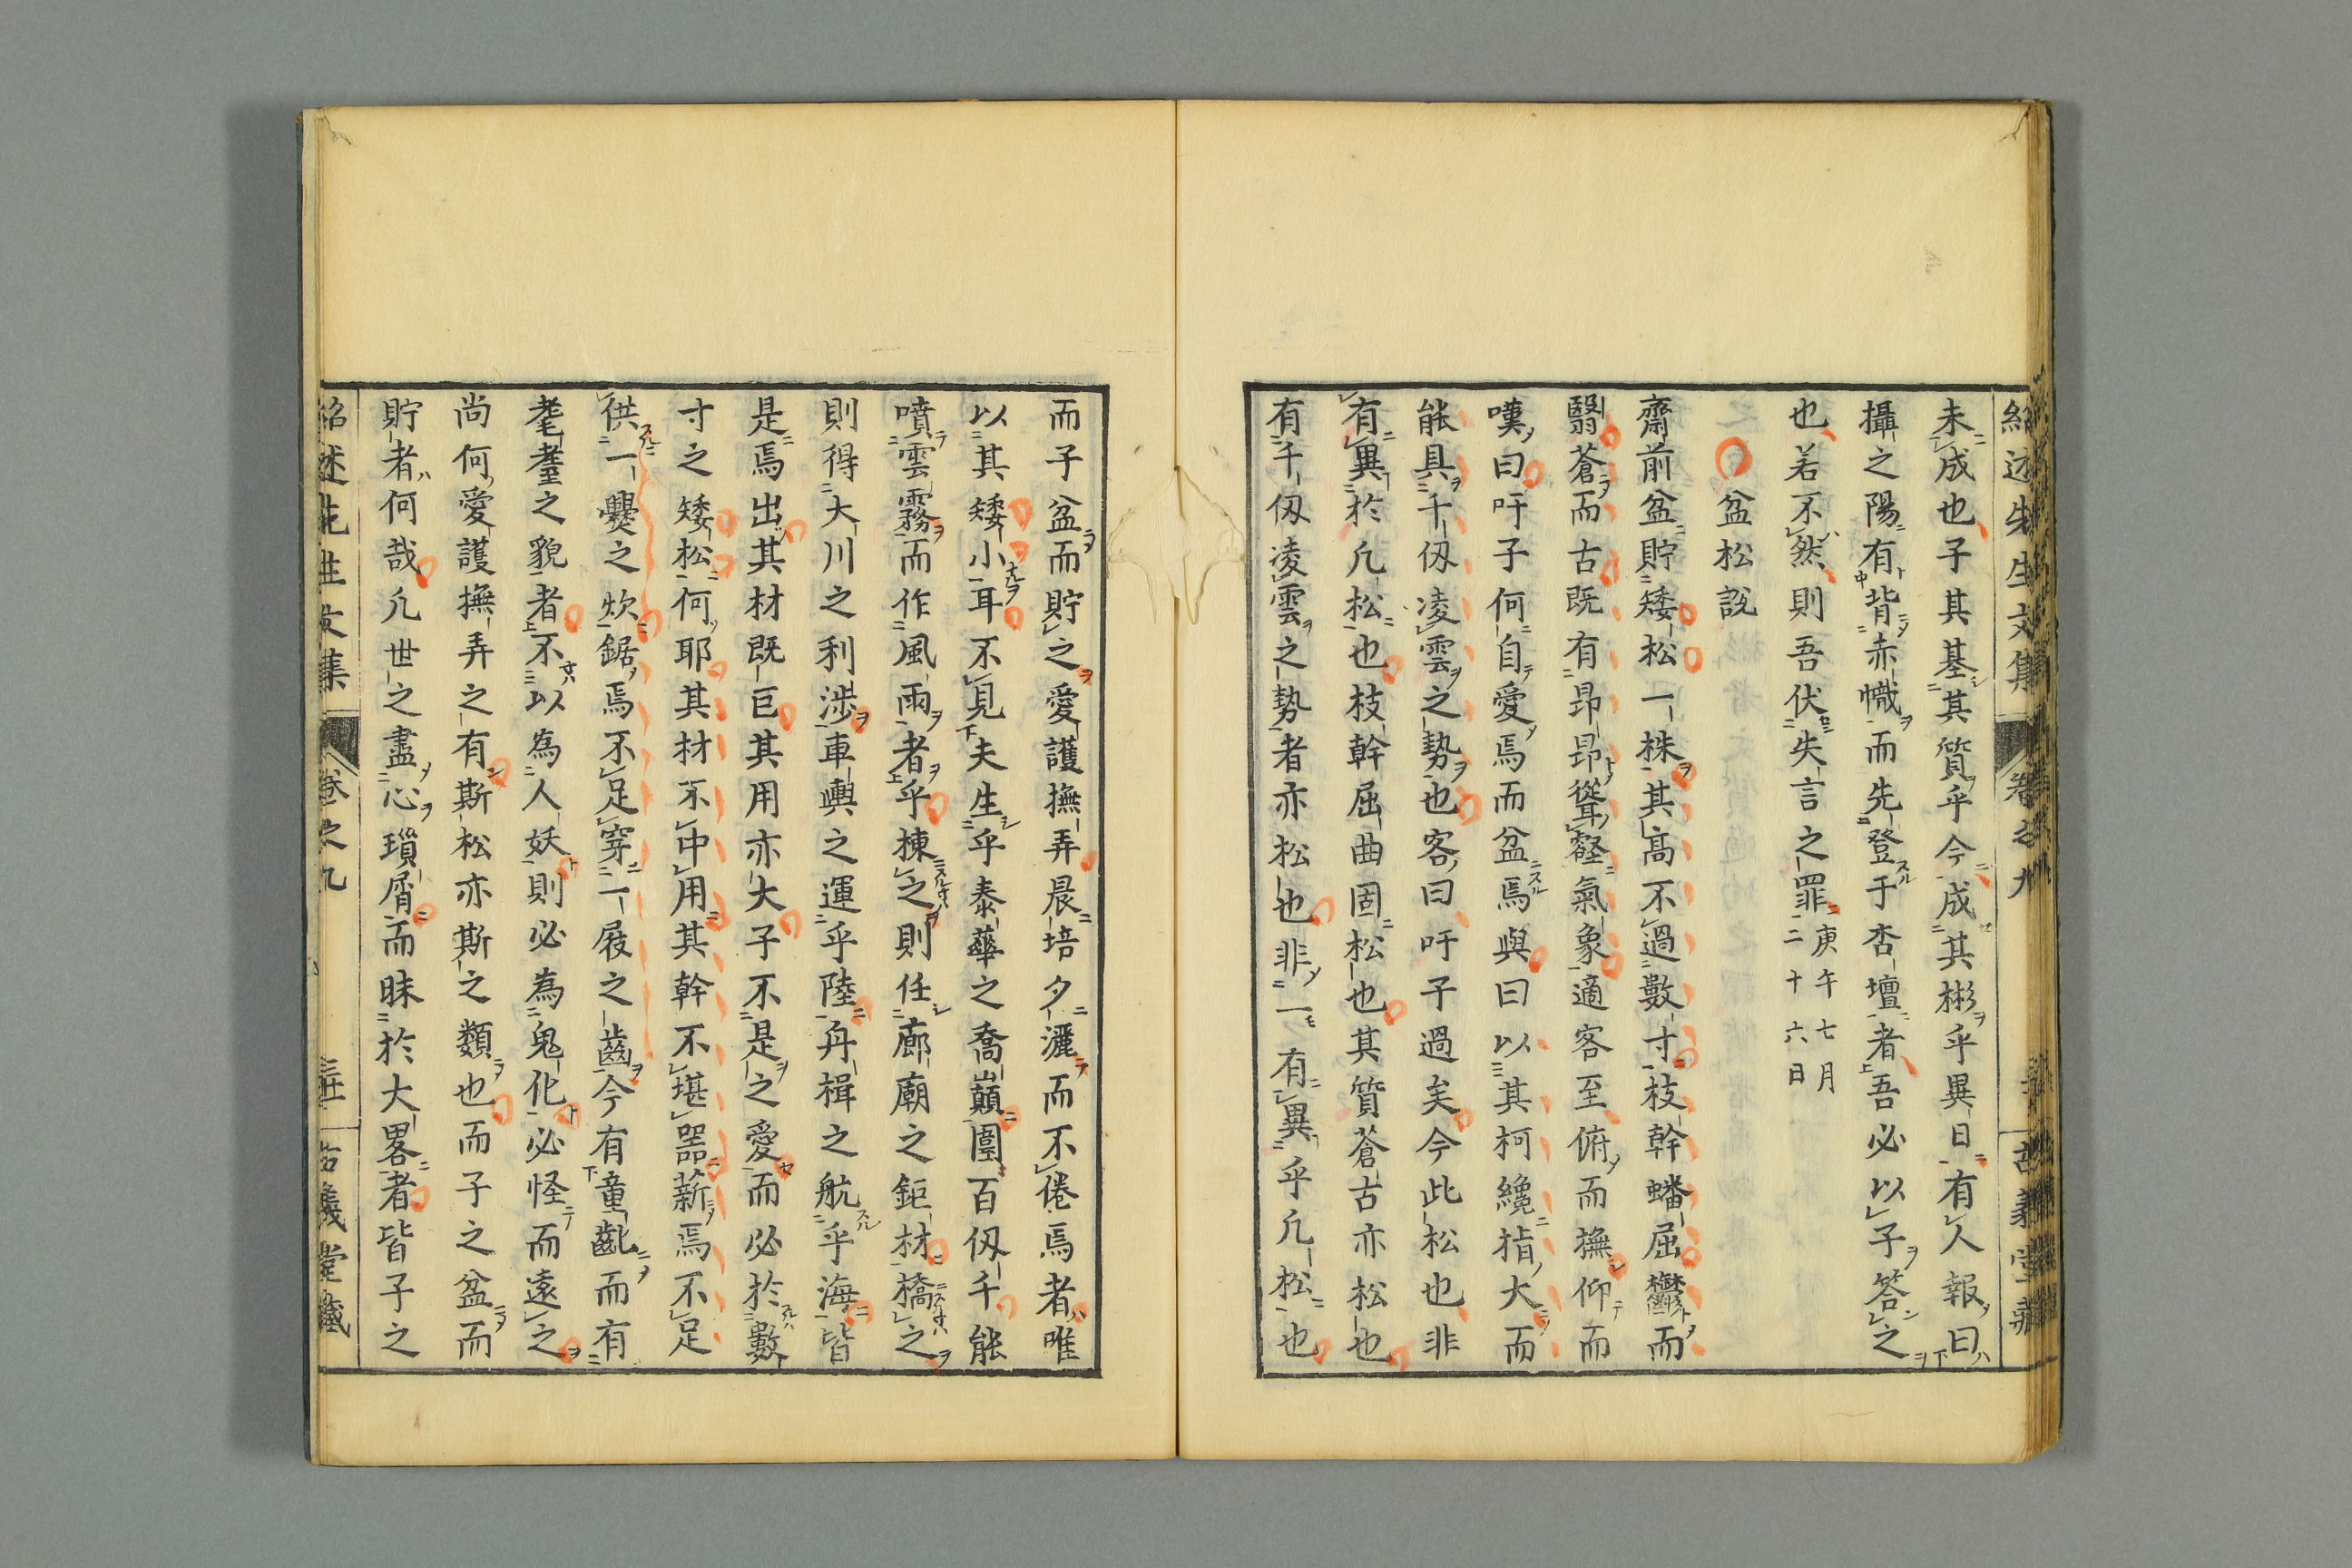 紹述先生文集 卷之九 古義堂藏
未成也子其基其質乎今成其彬乎異日有人報曰
攝之陽有背赤幟而先登于杏壇者吾必以子答之
也若不然則吾伏失言之罪庚午七月二十六日
盆松說
齋前盆貯矮松一株其高不過數寸枝幹蟠屈鬱而
翳蒼而古既有昂昂聳壑氣象適客至俯而撫仰而
嘆曰吁子何自愛焉而盆焉與曰以其柯纔指大而
能具千仭凌雲之勢也客曰吁子過矣今此松也非
有異於凡松也枝幹屈曲固松也其質蒼古亦松也
有千仭凌雲之勢者亦松也非一有異乎凡松也
而子盆而貯之愛護撫弄晨培夕灑而不倦焉者唯
以其矮小耳不見夫生乎泰華之喬巔圍百仭千能
噴雲霧而作風雨者乎棟之則任廊廟之鉅材橋之
則得大川之利涉車輿之運乎陸舟楫之航乎海皆
是焉出其材既巨其用亦大子不是之愛而必於數
寸之矮松何耶其材不中用其幹不堪器薪焉不足
供一爨之炊鋸焉不足穿一屐之齒今有童齔而有
耄耋之貌者不以為人妖則必為鬼化必怪而遠之
尚何愛護撫弄之有斯松亦斯之類也而子之盆而
貯者何哉凡世之盡心瑣屑而昧於大畧者皆子之
紹述先生文集 卷之九 古義堂藏